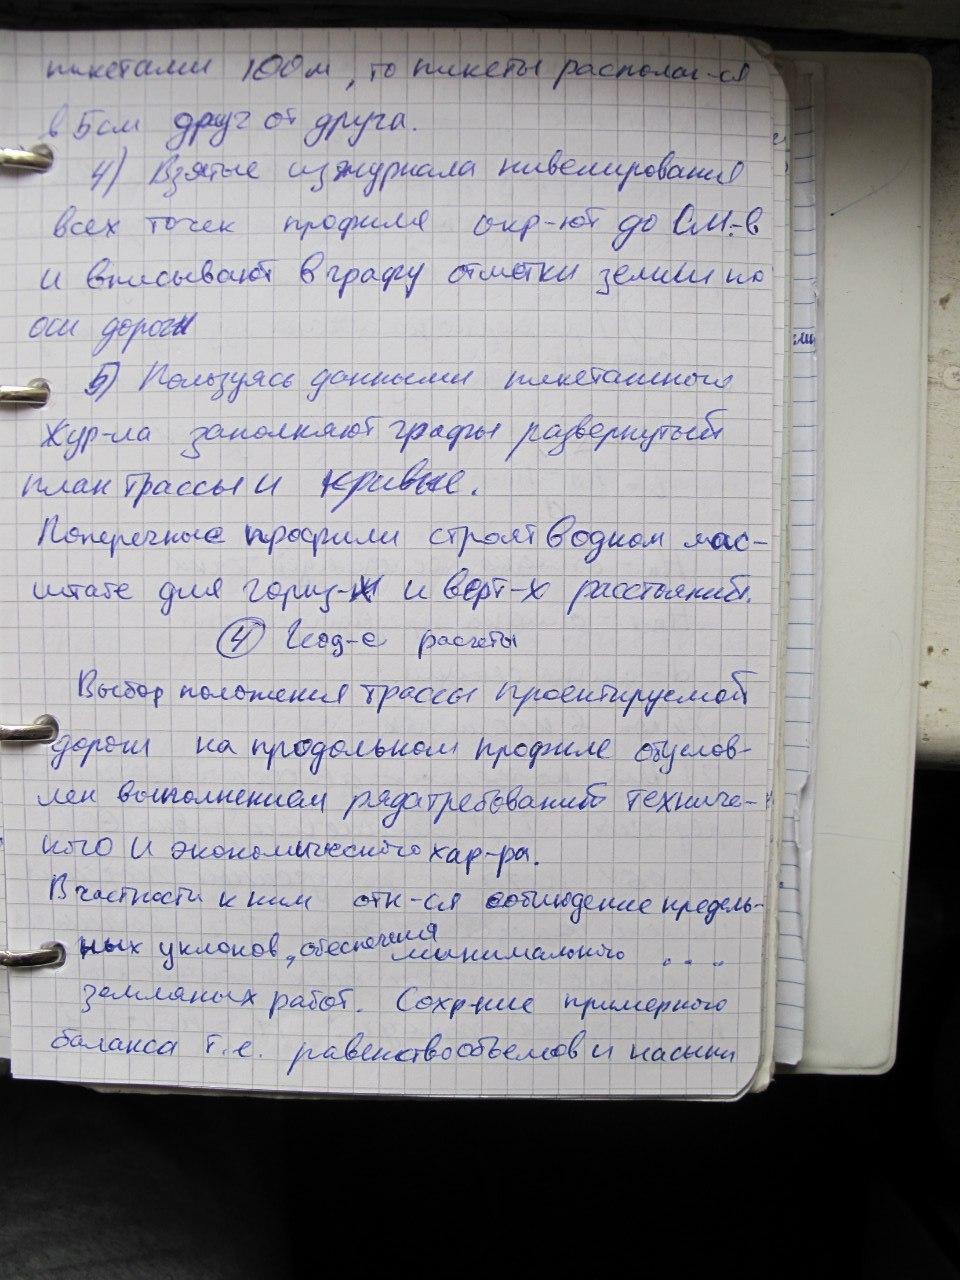 пикетами 100м, то пикеты располаг-ся
в 5см друг от друга.
4) Взятые из журнала нивелирования
всех точек профиля окр-ют до см-в
и вписывают в графу отметки земли по
оси дороги
5) Пользуясь данными пикетажного
жур-ла заполняют графы развернутый
план трассы и кривые.
Поперечные профили строят в одном мас-
штабе для гориз-х и верт-х расстояний.
4 Геод-е расчеты
Выбор положения трассы проектируемой
дороги на продольном профиле обуслов-
лен выполнением ряда требований техниче-
кого и экономического хар-ра.
В частности к ним отн-ся соблюдение предель-
ных уклонов, обеспечения минимального ....
земляных работ. Сохр-ние примерного
баланса т.е. равенство объемов и насыпи